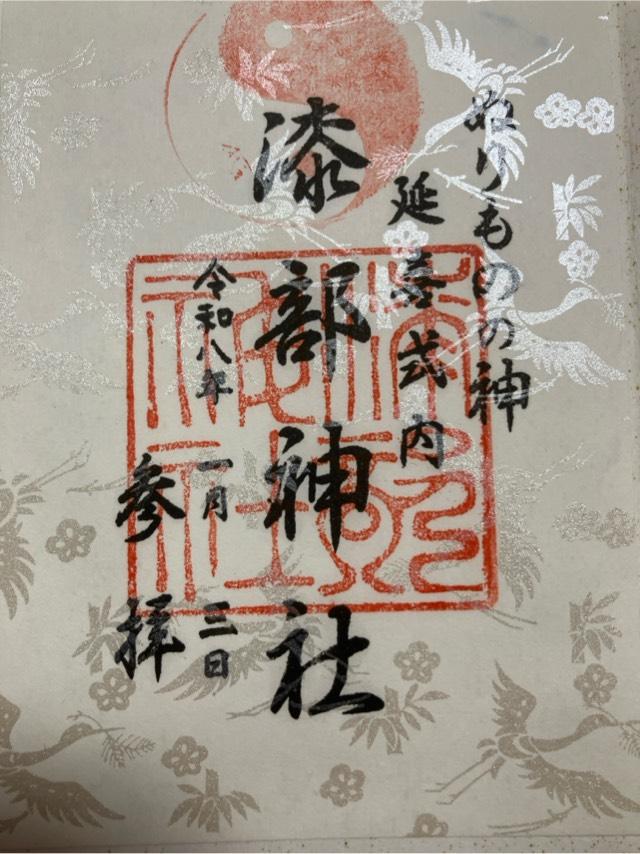 ぬりものの神
延喜式内
漆部神社
令和八年
一月
三日
参拝